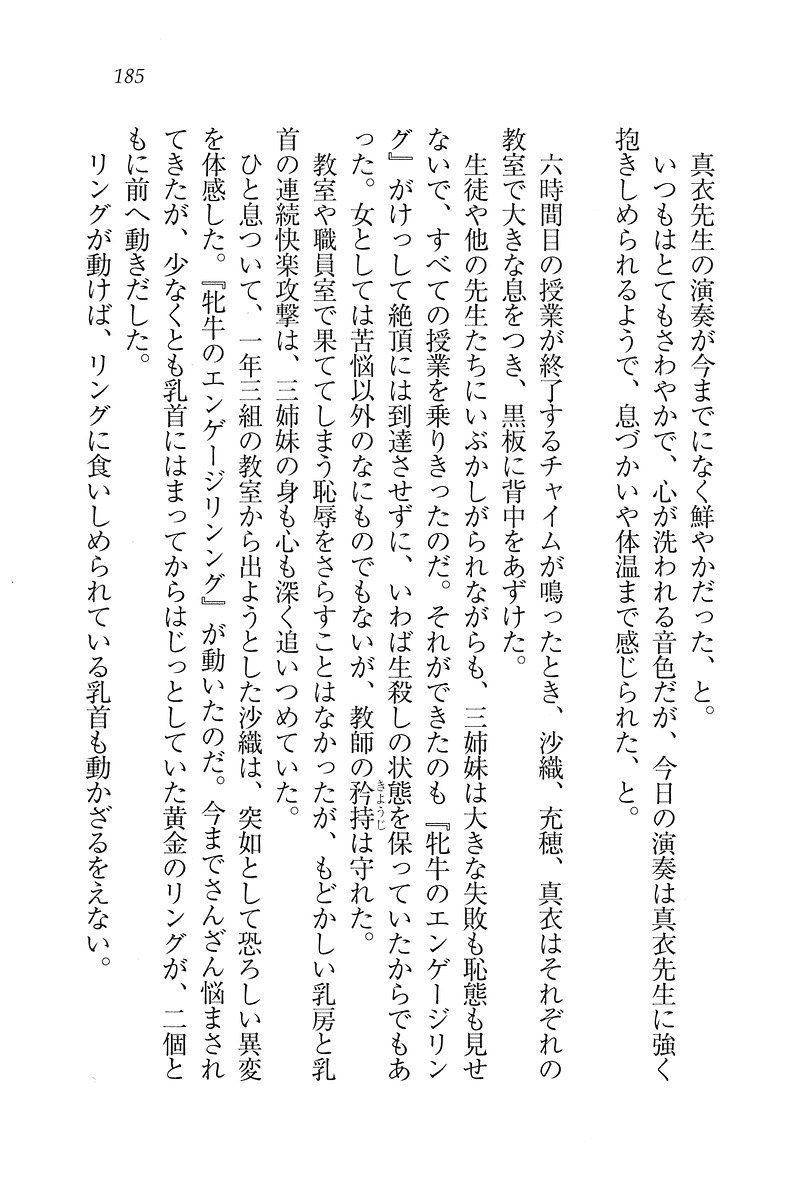 185
真衣先生の演奏が今までになく鮮やかだった、と。
いつもはとてもさわやかで、心が洗われる音色だが、今日の演奏は真衣先生に強く
抱きしめられるようで、息づかいや体温まで感じられた、と。
六時間目の授業が終了するチャイムが鳴ったとき、沙織、充穂、真衣はそれぞれの
教室で大きな息をつき、黒板に背中をあずけた。
生徒や他の先生たちにいぶかしがられながらも、三姉妹は大きな失敗も恥態も見せ
ないで、すべての授業を乗りきったのだ。それができたのも『牝牛のエンゲージリン
グ』がけっして絶頂には到達させずに、いわば生殺しの状態を保っていたからでもあ
った。女としては苦悩以外のなにものでもないが、教師の矜持は守れた。
きょうじ
教室や職員室で果ててしまう恥辱をさらすことはなかったが、もどかしい乳房と乳
首の連続快楽攻撃は、三姉妹の身も心も深く追いつめていた。
ひと息ついて、一年三組の教室から出ようとした沙織は、突如として恐ろしい異変
を体感した。『牝牛のエンゲージリンング』が動いたのだ。今までさんざん悩まされ
てきたが、少なくとも乳首にはまってからはじっとしていた黄金のリングが、二個と
もに前へ動きだした。
リングが動けば、リングに食いしめられている乳首も動かざるをえない。